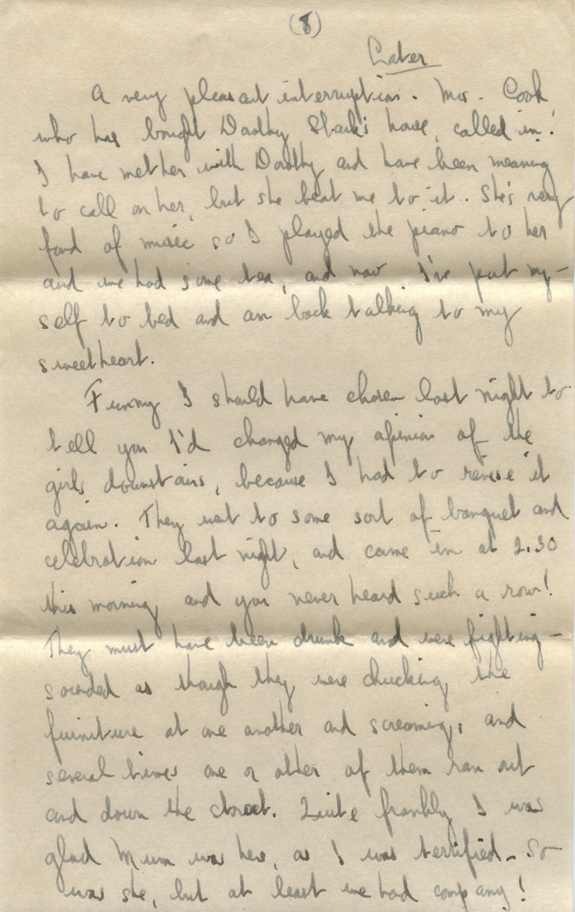 (8)
Later
A very pleasant interruption. Mrs. Cook
who has bought Daddy Stack's house, called in!
I have met her with Daddy and have been meaning
to call on her, but she beat me to it. She's very
fond of music so I played the piano to her
and we had some tea, and now I've put my-
self to bed and am back talking to my
sweetheart.
Funny I should have chosen last night to
tell you I'd changed my opinion of the
girls downstairs, because I had to revise it
again. They went to some sort of banquet and
celebration last night, and came in at 2.30
this morning and you never heard such a row!
They must have been drunk and were fighting -
sounded as though they were chucking the
furniture at one another and screaming, and
several times one or other of them ran out
and down the street. Quite frankly I was
glad Mum was here, as I was terrified - So
was she, but at least we had company!